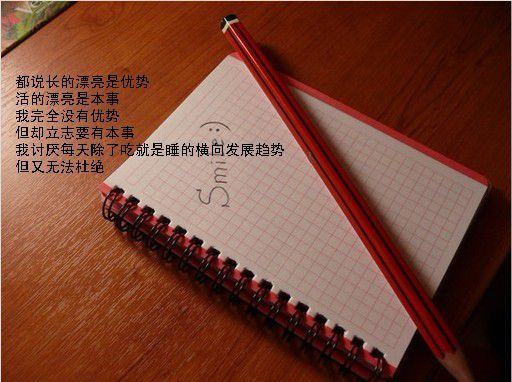 都说长的漂亮是优势
活的漂亮是本事
我完全没有优势
但却立志要有本事
我讨厌每天除了吃就是睡的横向发展趋势
但又无法杜绝
Smile:)